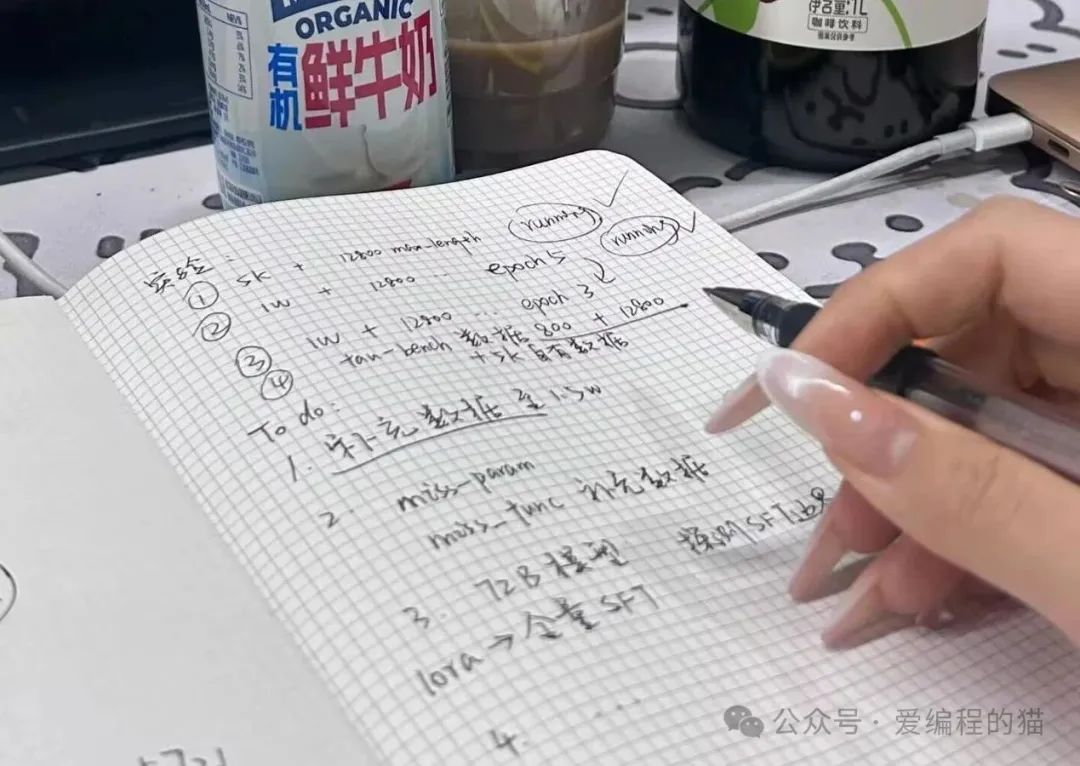 ORGANIC
有机
鲜牛奶
1L
咖啡饮料
实验:
① 5k + 12800 max-length running ✓
② 1w + 12800 ... epoch 5 running ✓
③ 1w + 12800 ... epoch 3
④ tau-bench 数据 800 + 12800
+ 5k 自有数据
To do:
1. 补充数据至1.5w
2. miss_param
miss_func 补充数据
3. 72B模型 探测SFT
lora → 全量SFT
4. ...
公众号 · 爱编程的猫